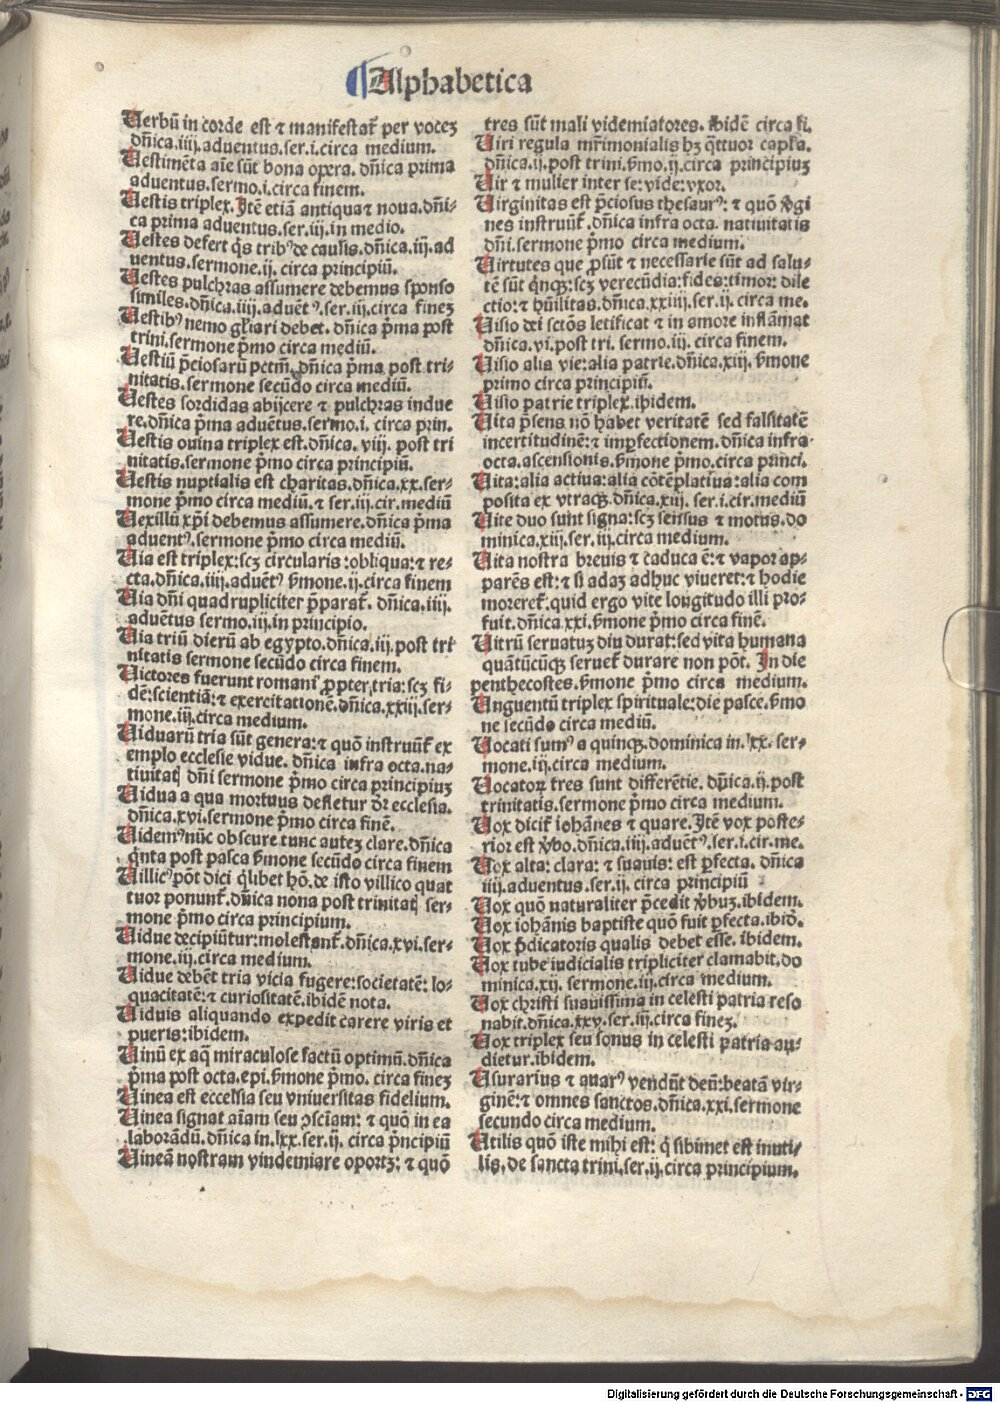 Alphabetica
Uerbū in corde est ⁊ manifestat᷑ per vocez
dñica.iiij.aduentus.ser.i.circa medium.
Uestimēta aīe sūt bona opera. dñica prima
aduentus.sermo.i.circa finem.
Uestis triplex.Itē etiā antiqua⁊ noua.dñi-
ca prima aduentus.ser.iij.in medio.
Uestes defert q̄s tribꝰ de causis.dñica.iij.ad
uentus.sermone.ij. circa principiū.
Uestes pulchras assumere debemus sponso
similes.dñica.iiij.aduētꝰ.ser.iij.circa finez
Uestibꝰ nemo gl̄iari debet. dñica p̄ma post
trini.sermone p̄mo circa mediū.
Uestiū p̄ciosarū pctm̄.dñica p̄ma post tri-
nitatis.sermone secūdo circa mediū.
Uestes sordidas abijcere ⁊ pulchras indue
re.dñica p̄ma aduētus.sermo.i. circa prin.
Uestis ouina triplex est.dñica. viij. post tri
nitatis.sermone p̄mo circa principiū.
Uestis nuptialis est charitas.dñica.xx.ser-
mone p̄mo circa mediū.⁊ ser.iij.cir.mediū
Uexillū xp̄i debemus assumere.dñica p̄ma
aduentꝰ.sermone p̄mo circa mediū.
Uia est triplex:scꝫ circularis:obliqua:⁊ re-
cta.dñica.iiij.aduētꝰ ẜmone.ij.circa finem
Uia dñi quadrupliciter p̄parat᷑. dñica.iiij.
aduētus sermo.iij.in principio.
Uia triū dierū ab egypto.dñica.iij.post tri
nitatis sermone secūdo circa finem.
Uictores fuerunt romani ꝓpter,tria:scꝫ fi-
dē:scientiā:⁊ exercitationē.dñica.xxiij.ser-
mone.iij.circa medium.
Uiduarū tria sūt genera:⁊ quō instruūt᷑ ex
emplo ecclesie vidue. dñica infra octa.na-
tiuitatꝭ dñi sermone p̄mo circa principiuz
Uidua a qua mortuus defletur dr̄ ecclesia.
dñica.xvi.sermone p̄mo circa finē.
Uidemꝰ nūc obscure tunc autez clare.dñica
q̄nta post pasca ẜmone secūdo circa finem
Uillicꝰ pōt dici q̄libet hō.de isto villico quat
tuor ponunt᷑.dñica nona post trinitatꝭ ser-
mone p̄mo circa principium.
Uidue decipiūtur:molestant᷑.dñica.xvi.ser-
mone.iij.circa medium.
Uidue debēt tria vicia fugere:societatē: lo-
quacitatē:⁊ curiositatē.ibidē nota.
Uiduis aliquando expedit carere viris et
pueris:ibidem.
Uinū ex aq̄ miraculose factū optimū.dñica
p̄ma post octa.epi.ẜmone p̄mo. circa finez
Uinea est ecclesia seu vniuersitas fidelium.
Uinea signat aīam seu ɔsciam: ⁊ quō in ea
laborādū.dñica in.lxx.ser.ij. circa p̄ncipiū
Uineā nostram vindemiare oportꝫ: ⁊ quō
tres sūt mali videmiatores. ibidē circa fi.
Uiri regula mr̄imonialis hꝫ q̄ttuor capl̄a.
dñica.ij.post trini.ẜmo.ij.circa principiuz
Uir ⁊ mulier inter se:vide:vxor.
Uirginitas est p̄ciosus thesaurꝰ: ⁊ quō v̄gi
nes instruūt᷑ .dñica infra octa. natiuitatis
dñi.sermone p̄mo circa medium.
Uirtutes que ꝓsūt ⁊ necessarie sūt ad salu-
tē sūt q̄nqꝫ:scꝫ verecūdia:fides:timor: dile
ctio:⁊ hūilitas.dñica.xxiiij.ser.ij.circa me.
Uisio dei sctōs letificat ⁊ in amore inflāmat
dñica.vi.post tri. sermo.iij. circa finem.
Uisio alia vie:alia patrie.dñica.xiij. ẜmone
primo circa principiū.
Uisio patrie triplex.ibidem.
Uita p̄sens nō habet veritatē sed falsitatē
incertitudinē:⁊ imꝑfectionem.dñica infra
octa.ascensionis.ẜmone p̄mo.circa princi.
Uita:alia actiua:alia cōtēplatiua:alia com
posita ex vtracꝫ.dñica.xiij. ser.i.cir.mediū
Uite duo sunt signa:scꝫ sensus ⁊ motus.do
minica.xiij.ser.iij.circa medium.
Uita nostra breuis ⁊ caduca ē: ⁊ vapor ap-
parēs est:⁊ si adaz adhuc viueret:⁊ hodie
moreret᷑.quid ergo vite longitudo illi pro-
fuit.dñica.xxi.ẜmone p̄mo circa finē.
Uitrū seruatuz diu durat:sed vita humana
quātūcūqꝫ seruet᷑ durare non pōt. In die
penthecostes.ẜmone p̄mo circa medium.
Unguentū triplex spirituale:die pasce.ẜmo
ne secūdo circa mediū.
Uocati sumꝰ a quinqꝫ.dominica in.lxx. ser-
mone.iij.circa medium.
Uocatoꝝ tres sunt differētie. dñica.ij.post
trinitatis.sermone p̄mo circa medium.
Uox dicit᷑ iohānes ⁊ quare.Itē vox poste-
rior est v̄bo.dñica.iiij.aduētꝰ.ser.i.cir.me.
Uox alta: clara: ⁊ suauis: est ꝑfecta. dñica
iiij.aduentus.ser.ij. circa principiū
Uox quō naturaliter p̄cedit v̄buz.ibidem.
Uox iohānis baptiste quō fuit ꝑfecta.ibid̄.
Uox p̄dicatoris qualis debet esse. ibidem.
Uox tube iudicialis tripliciter clamabit.do
minica.xij. sermone.iij.circa medium.
Uox christi suauissima in celesti patria reso
nabit.dñica.xxv.ser.iij.circa finez.
Uox triplex seu sonus in celesti patria au-
dietur.ibidem.
Usurarius ⁊ auarꝰ vendūt deū:beatā vir-
ginē:⁊ omnes sanctos.dñica.xxi.sermone
secundo circa medium.
Utilis quō iste mihi est: q̄ sibimet est inuti-
lis.de sancta trini.ser.ij.circa principium.
Digitalisierung gefördert durch die Deutsche Forschungsgemeinschaft - DFG